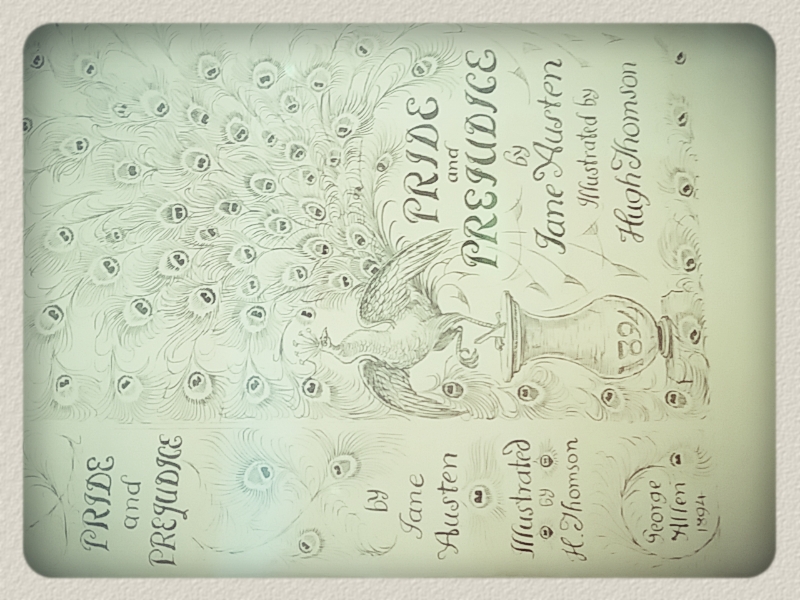 PRIDE
and
PREJUDICE
by
Jane
Austen
Illustrated
by
H. Thomson
George
Allen
1894
PRIDE
and
PREJUDICE
by
Jane Austen
Illustrated by
Hugh Thomson